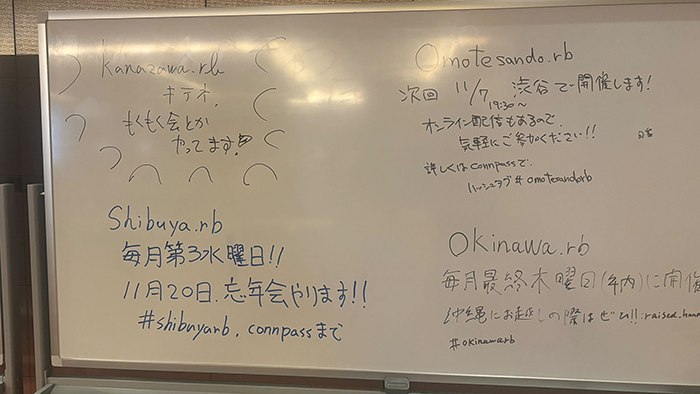 kanazawa.rb
キテネ、
もくもく会とか
やってます!
Shibuya.rb
毎月第3水曜日!!
11月20日、忘年会やります!!
#shibuyarb, connpassまで
Omotesando.rb
次回 11/7 渋谷で開催します!
19:30〜
オンライン配信もあるので、
気軽にご参加ください!!
詳しくはconnpassで、
ハッシュタグ #omotesandorb
Okinawa.rb
毎月最終木曜日(年内)に開催
沖縄にお越しの際はぜひ!!:raised_han
#okinawarb